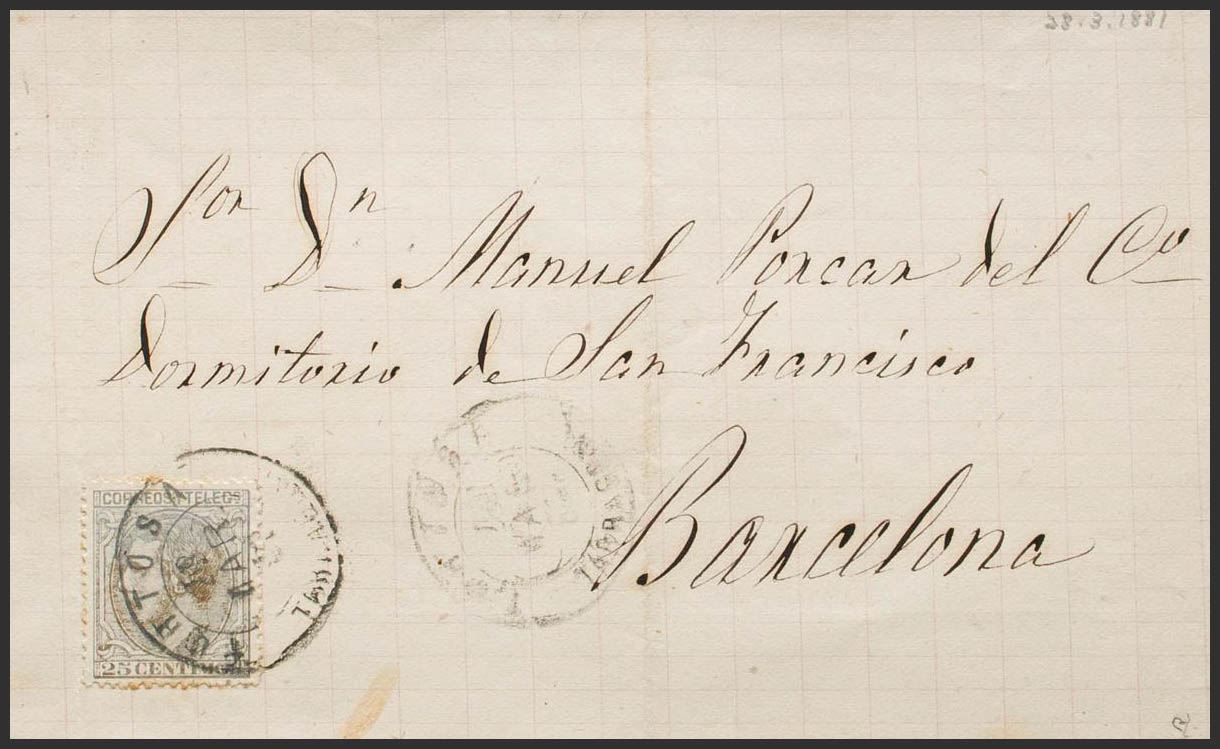 28.3.1881
Sor Dn Manuel Porcar del Co
Dormitorio de San Francisco
Barcelona
CORREOS Y TELEGS
25 CENTIMOS
TORTOSA
TARRAGONA
TORTOSA
18 MAR
TARRAGONA